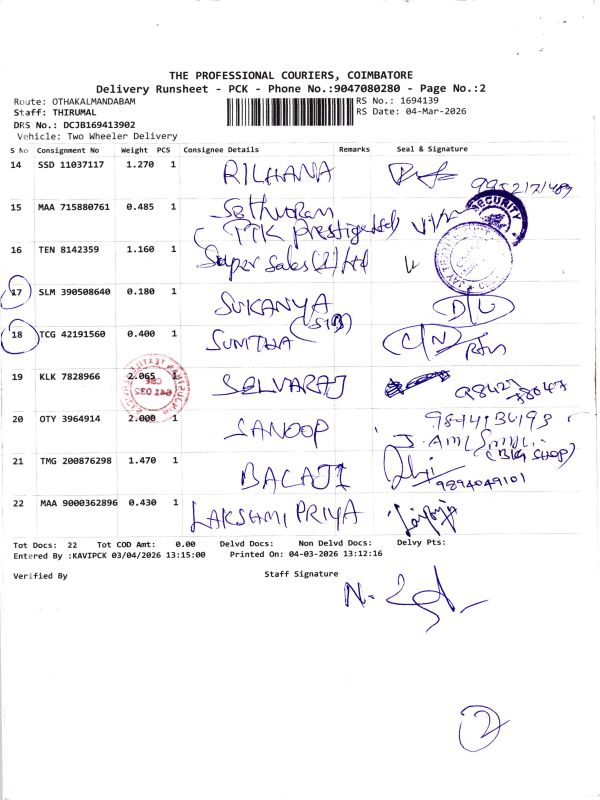 THE PROFESSIONAL COURIERS, COIMBATORE
Delivery Runsheet - PCK - Phone No.:9047080280 - Page No.:2
Route: OTHAKALMANDABAM RS No.: 1694139
Staff: THIRUMAL RS Date: 04-Mar-2026
DRS No.: DCJB169413902
Vehicle: Two Wheeler Delivery
S No Consignment No Weight PCS Consignee Details Remarks Seal & Signature
14 SSD 11037117 1.270 1 RILHANA
15 MAA 715880761 0.485 1 Sethuram
(TTK prestige Ltd)
SECURITY
16 TEN 8142359 1.160 1 Super Sales (I) Ltd
17 SLM 390508640 0.180 1 SUKANYA D/L
(SIB)
18 TCG 42191560 0.400 1 SUNITHA C/N
19 KLK 7828966 2.065 1 SELVARAJ 98427
78047
641 032
20 OTY 3964914 2.000 1 SANOOP 9844134193
(BIG SHOP)
21 TMG 200876298 1.470 1 BALAJI
9894049101
22 MAA 9000362896 0.430 1 LAKSHMI PRIYA
Tot Docs: 22 Tot COD Amt: 0.00 Delvd Docs: Non Delvd Docs: Delvy Pts:
Entered By :KAVIPCK 03/04/2026 13:15:00 Printed On: 04-03-2026 13:12:16
Verified By Staff Signature
2